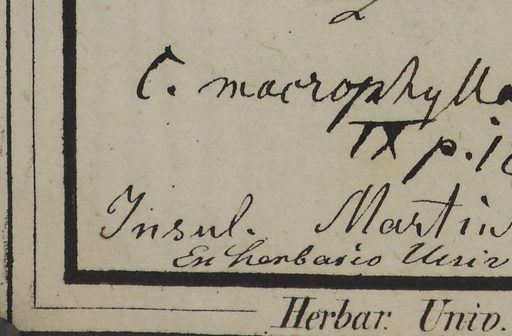 C. macrophylla
IX p. 1
Insul. Martin
Ex herbario Univ
Herbar. Univ.